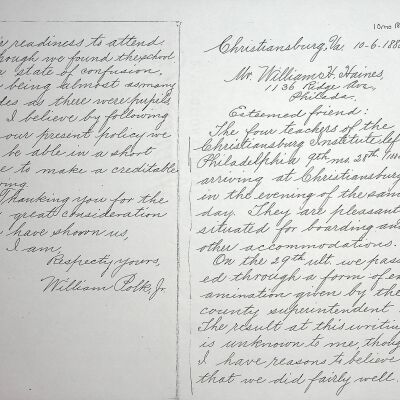 10mo 18
Christiansburg, Va. 10-6-188
Mr. William H. Haines,
1136 Ridge Ave,
Philada.
Esteemed friend:
The four teachers of the
Christiansburg Institute lef
Philadelphia 9th mo. 28th
arriving at Christiansburg
in the evening of the sam
day. They are pleasant
situated for boarding and
other accommodations.
On the 29th ult. we pass
ed through a form of ex
amination given by the
county superintendent
The result at this writin
is unknown to me, thoug
I have reasons to believe
that we did fairly well.
readiness to attend
rough we found the school
a state of confusion,
being almost as many
des as there were pupils
I believe by following
our present policy we
be able in a short
e to make a creditable
ing.
Thanking you for the
great consideration
have shown us,
I am,
Respecty, yours,
William Polk, Jr.